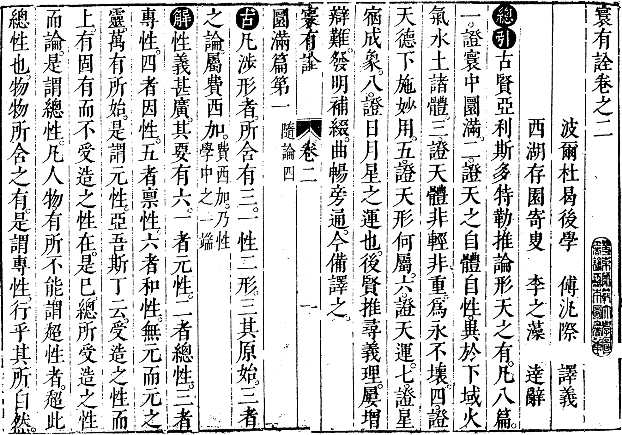 寰有詮卷之二
波爾杜曷後學 傅汎際 譯義
西湖存園寄叟 李之藻 達辭
總引古賢亞利斯多特勒推論形天之有凡八篇
一證寰中圜滿二證天之自體自性異於下域火
氣水土諸體三證天體非輕非重為永不壞四證
天德下施妙用五證天形何屬六證天運七證星
宿成象八證日月星之運也後賢推尋義理屢增
辯難發明補綴曲暢旁通今備譯之
寰有詮 卷二 一
圜滿篇第一 隨論四
古凡涉形者所含有三一性二形三其原始三者
之論屬費西加費西加乃性
學中之一端
解性義甚廣其要有六一者元性二者總性三者
專性四者因性五者禀性六者和性無元而元之
靈萬有所始是謂元性亞吾斯丁云受造之性而
上有固有而不受造之性在是巳總所受造之性
而論是謂總性凡人物有所不能謂超性者超此
總性也物物所含之有是謂專性行乎其所自然